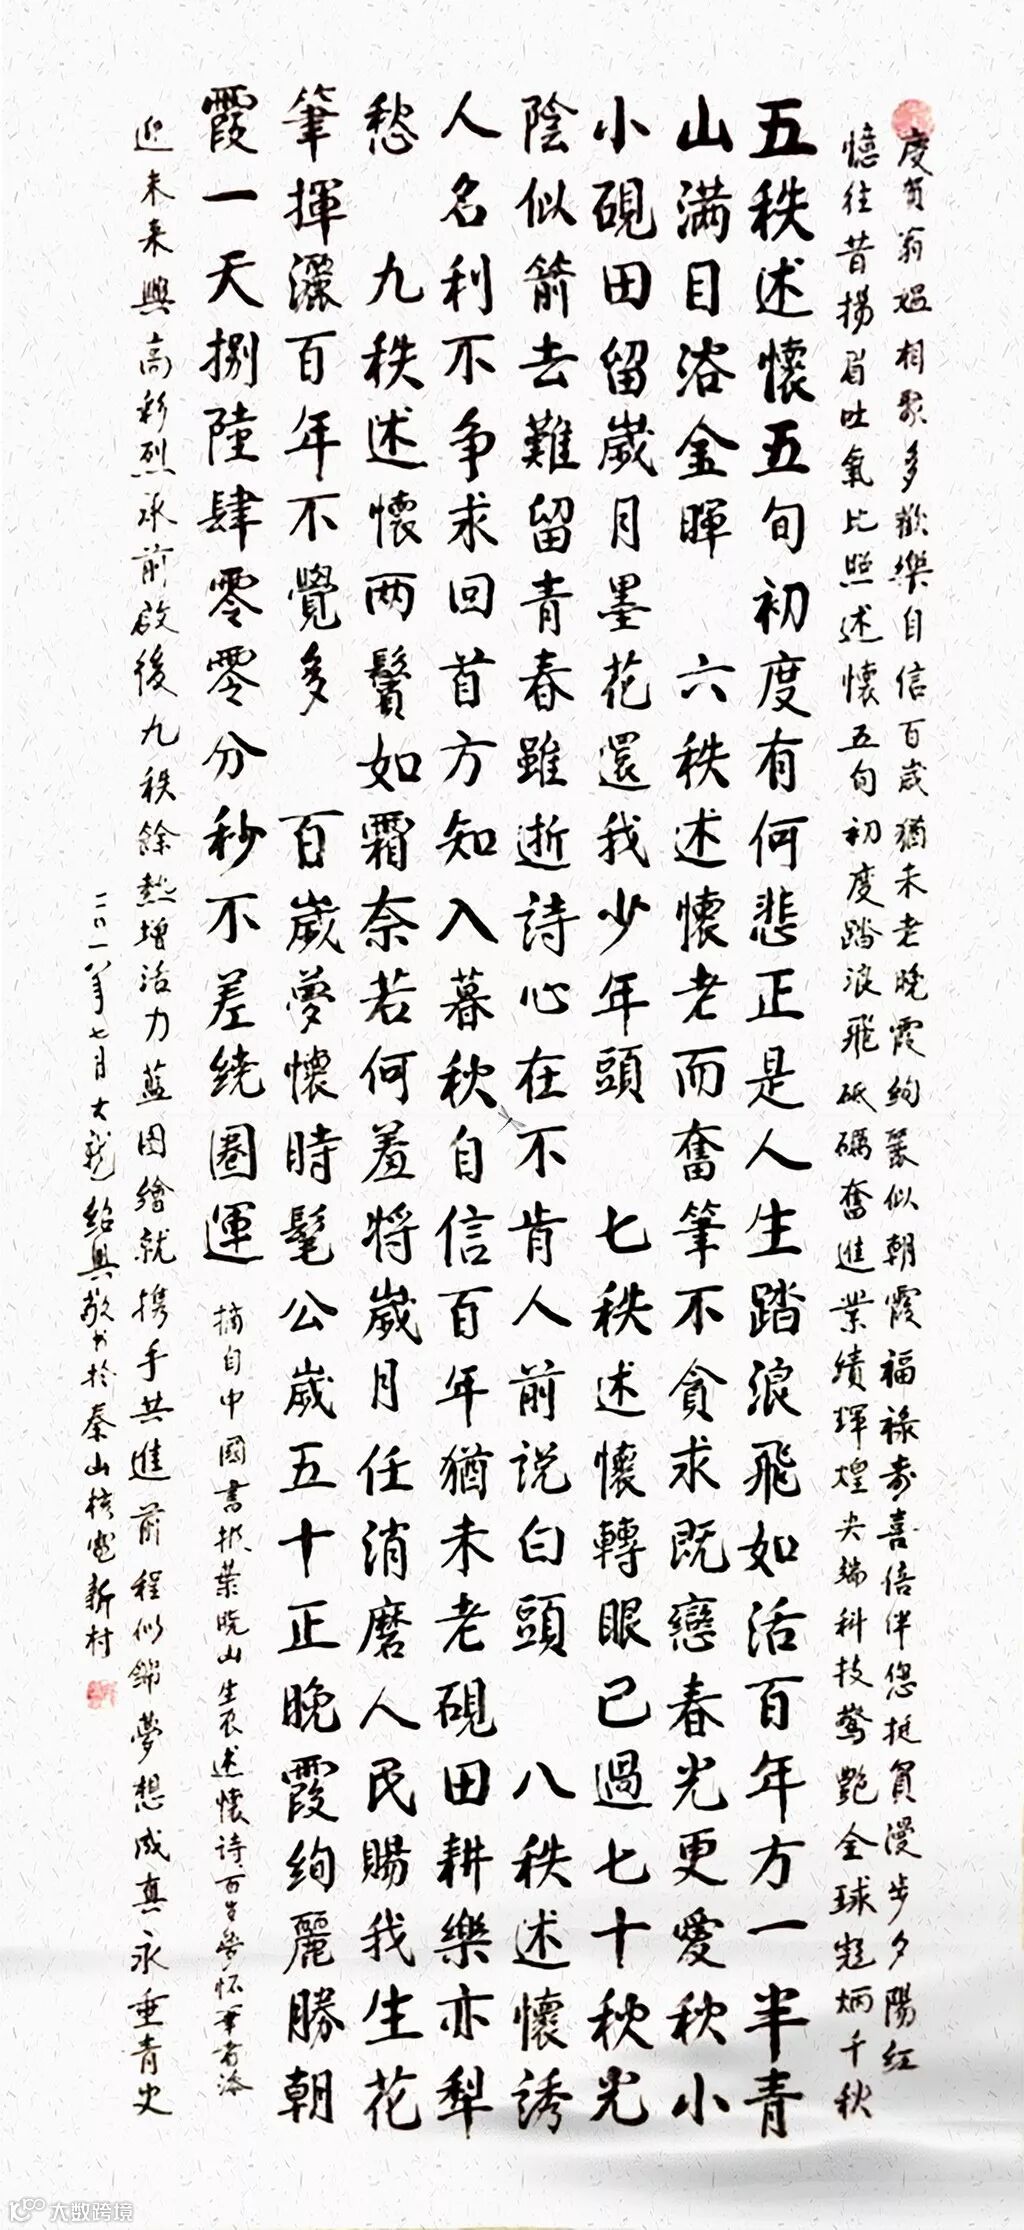 度賀翁媪相聚多歡樂自信百歲猶未老晚霞絢麗似朝霞福祿壽喜倍伴您挺肩漫步夕陽紅
憶往昔揚眉吐氣比照述懷五旬初度踏浪飛砥礪奮進業績輝煌尖端科技驚艷全球彪炳千秋
五秩述懷五旬初度有何悲正是人生踏浪飛如活百年方一半青
山滿目浴金暉 六秩述懷老而奮筆不貪求既戀春光更愛秋小
小硯田留歲月墨花還我少年頭 七秩述懷轉眼已過七十秋光
陰似箭去難留青春雖逝詩心在不肯人前說白頭 八秩述懷誘
人名利不争求回首方知入暮秋自信百年猶未老硯田耕樂亦犁
愁 九秩述懷两鬢如霜奈若何羞將歲月任消磨人民賜我生花
筆揮灑百年不覺多 百歲夢懷時髦公歲五十正晚霞絢麗勝朝
霞一天捌陸肆零零分秒不差繞圈運
摘自中國書报葉晚山生辰述懷詩百岁夢怀筆者添
迎未来興高彩烈承前啟後九秩餘熱增活力藍图繪就携手共進前程似錦夢想成真永垂青史
二〇一八年七月大龍紹興敬书於秦山核電新村
大数跨境